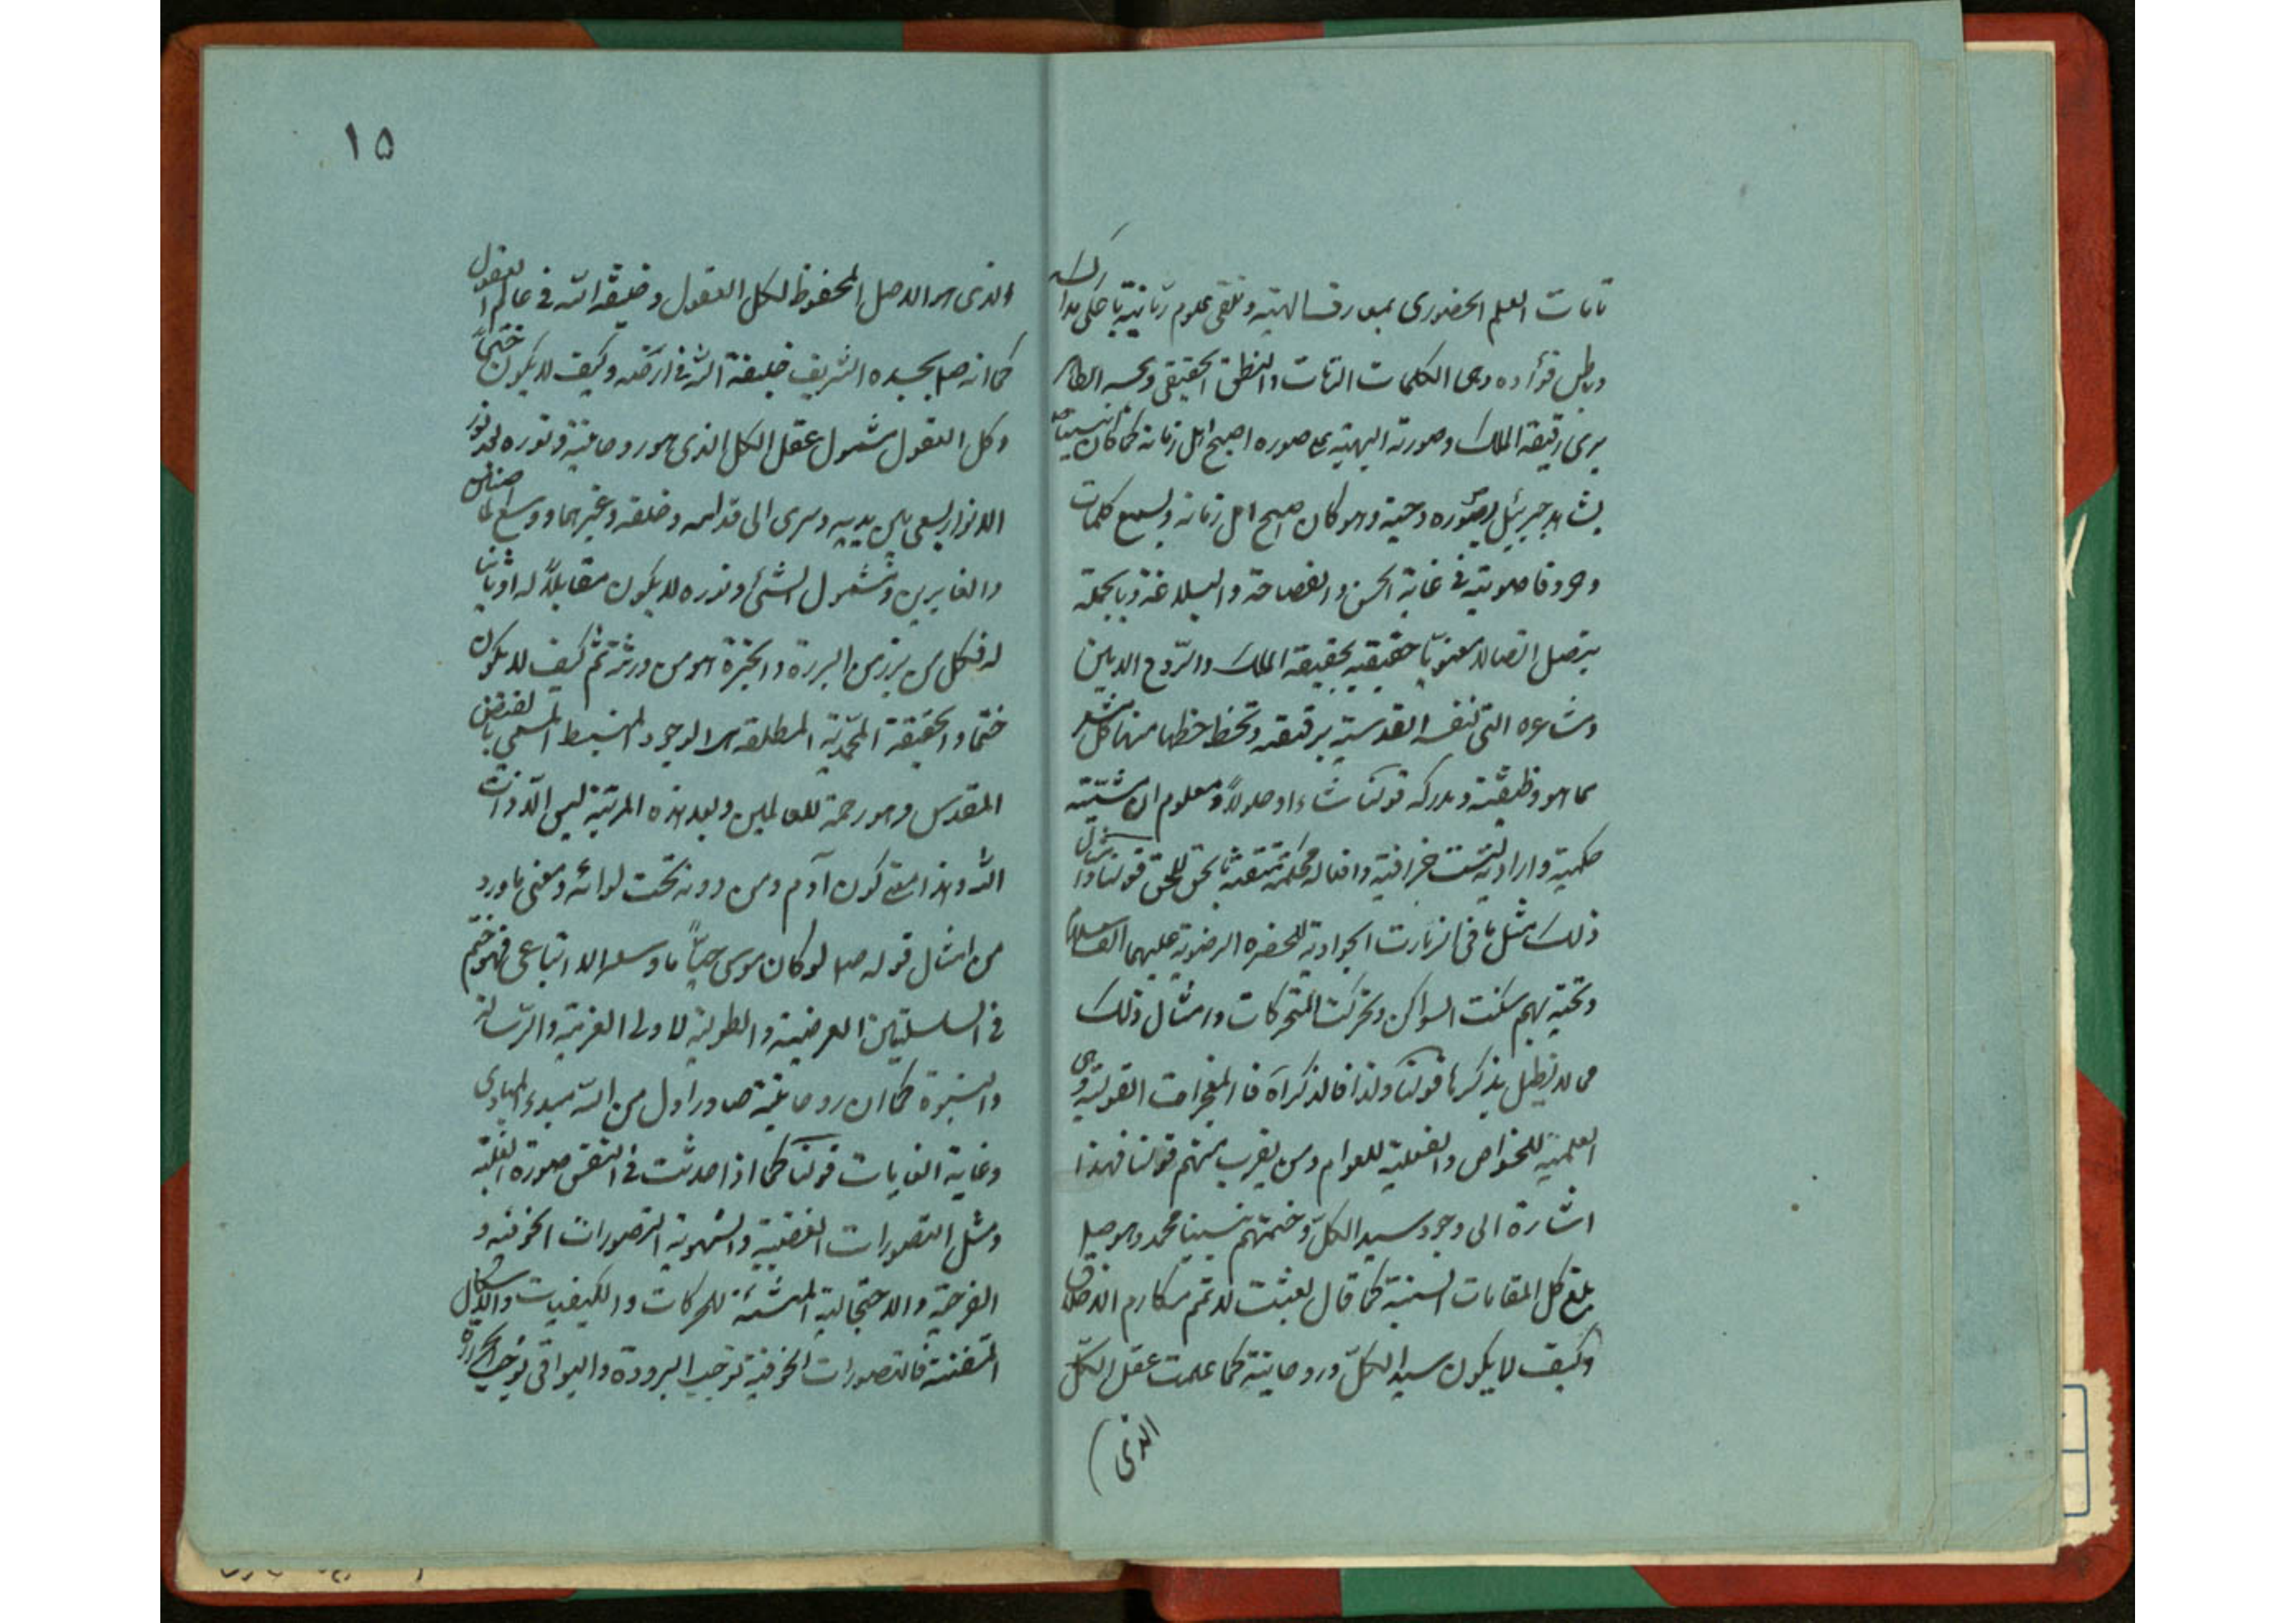 تامات العلم الحضوری بمعارف الهیة و تلقی علوم ربانیة باحلی مدارک
و باطن فؤاده وحی الکلمات التامات والنطق الحقیقی و بحسه الظاهر
یری رقیقة الملک و صورته البهیة علی صورة اصبح اهل زمانه کما کان نبینا ص
یشاهد جبرئیل بصورة دحیة و هو کان اصبح اهل زمانه و یسمع کلمات
و حروفا صوتیة فی غایة الحسن والفصاحة والبلاغة و بالجملة
یتصل اتصالا معنویا حقیقیة بحقیقة الملک والروح الامین
و مشاعره التی لنفسه القدسیة برقیقته و تحظ حظها منها کل مشعر
بما هو وظیفته و مدرکه قولنا شاء اوصلا و معلوم ان مشیته
حکمیة و ارادته لیست جزافیة و افعاله محکمة متقنة بالحق للحق قولنا و امثال
ذلک مثل ما فی الزیارت الجوادیة للحضرة الرضویة علیهما السلام
و تحیة بهم سکنت السواکن و تحرکت المتحرکات و امثال ذلک
مما لا نطیل بذکرها قولنا ولذا فالذکر آه فالمعجزات القولیة و هی
العلمیة للخواص والفعلیة للعوام و من یقرب منهم قولنا فهذا
اشارة الی وجود سید الکل و ختمهم نبینا محمد و هو صلی
بلغ کل المقامات السنیة کما قال بعثت لاتمم مکارم الاخلاق
و کیف لا یکون سید الکل و روحانیته کما علمت عقل الکل
الذی
۱۵
والذی هو الاصل المحفوظ لکل العقول و خلیفة الله فی عالم العقول
کما انه ص بجسده الشریف خلیفة الله فی ارضه و کیف لا یکون ختما
و کل العقول مشمول عقل الکل الذی هو روحانیته و نوره لانه نور
الانوار یسعی بین یدیه و سری الی قدامه و خلفه و غیرهما و وسع الماضین
والغابرین و مشمول الشئ و نوره لا یکون مقابلا له او ثانیا
له فکل من برز من البررة والخیرة هو من ورثته ثم کیف لا یکون
ختما والحقیقة المحمدیة المطلقة هو الوجود المنبسط المسمی بالفیض
المقدس و هو رحمة للعالمین و بعد هذه المرتبة لیس الا ذات
الله و هذا معنی کون آدم و من دونه تحت لوائه و معنی ما ورد
من امثال قوله ص لو کان موسی حیا ما وسعه الا اتباعی فهو ختم
فی السلسلتین العرضیة والطولیة لاولی العزیة والرسالة
والنبوة کما ان روحانیته صادر اول من الله مبدء المبادی
و غایة الغایات قولنا کما اذا حدثت فی النفس صورة الغلبة
و مثل التصورات الغضبیة والشهویة التصورات الخوفیة و
الفرحیة والاحتجابیة المنشئة للحرکات والکیفیات والاشکال
المتفننة فالتصورات الخوفیة توجب البرودة والبواقی توجب الحرارة